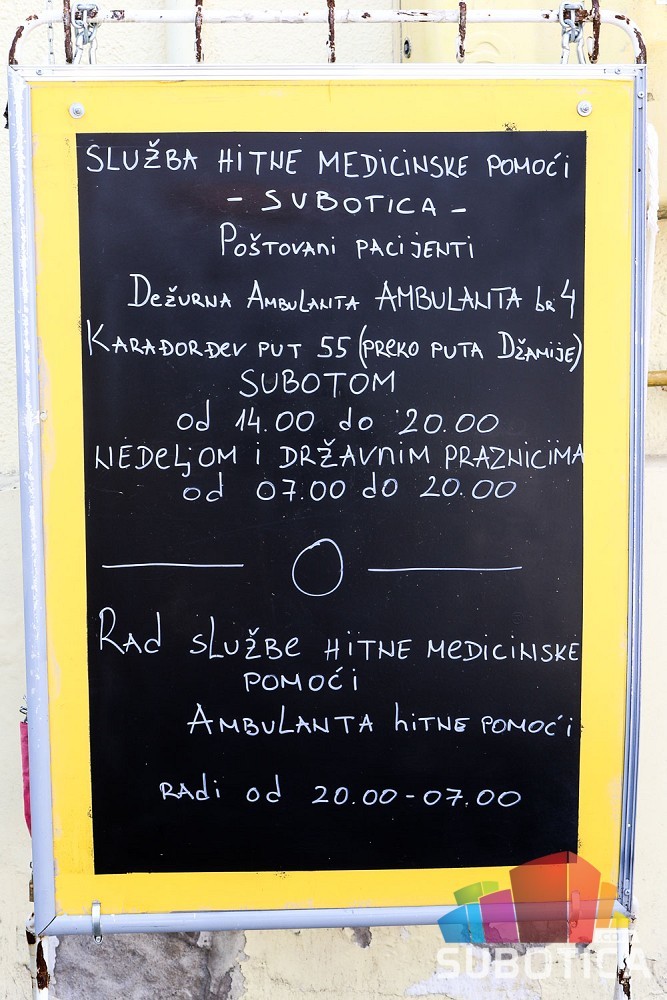 SLUŽBA HITNE MEDICINSKE POMOĆI
- SUBOTICA -
Poštovani PACIJENTI
DEŽURNA AMBULANTA AMBULANTA br 4
KARAĐORĐEV PUT 55 (PREKO PUTA DŽAMIJE)
SUBOTOM
od 14.00 do 20.00
NEDELJOM i DRŽAVNIM PRAZNICIMA
od 07.00 do 20.00
RAd SLUŽBE HITNE MEDICINSKE
POMOĆI
AMBULANTA hITNE POMOĆI
RADI od 20.00-07.00
.COM
SUBOTICA